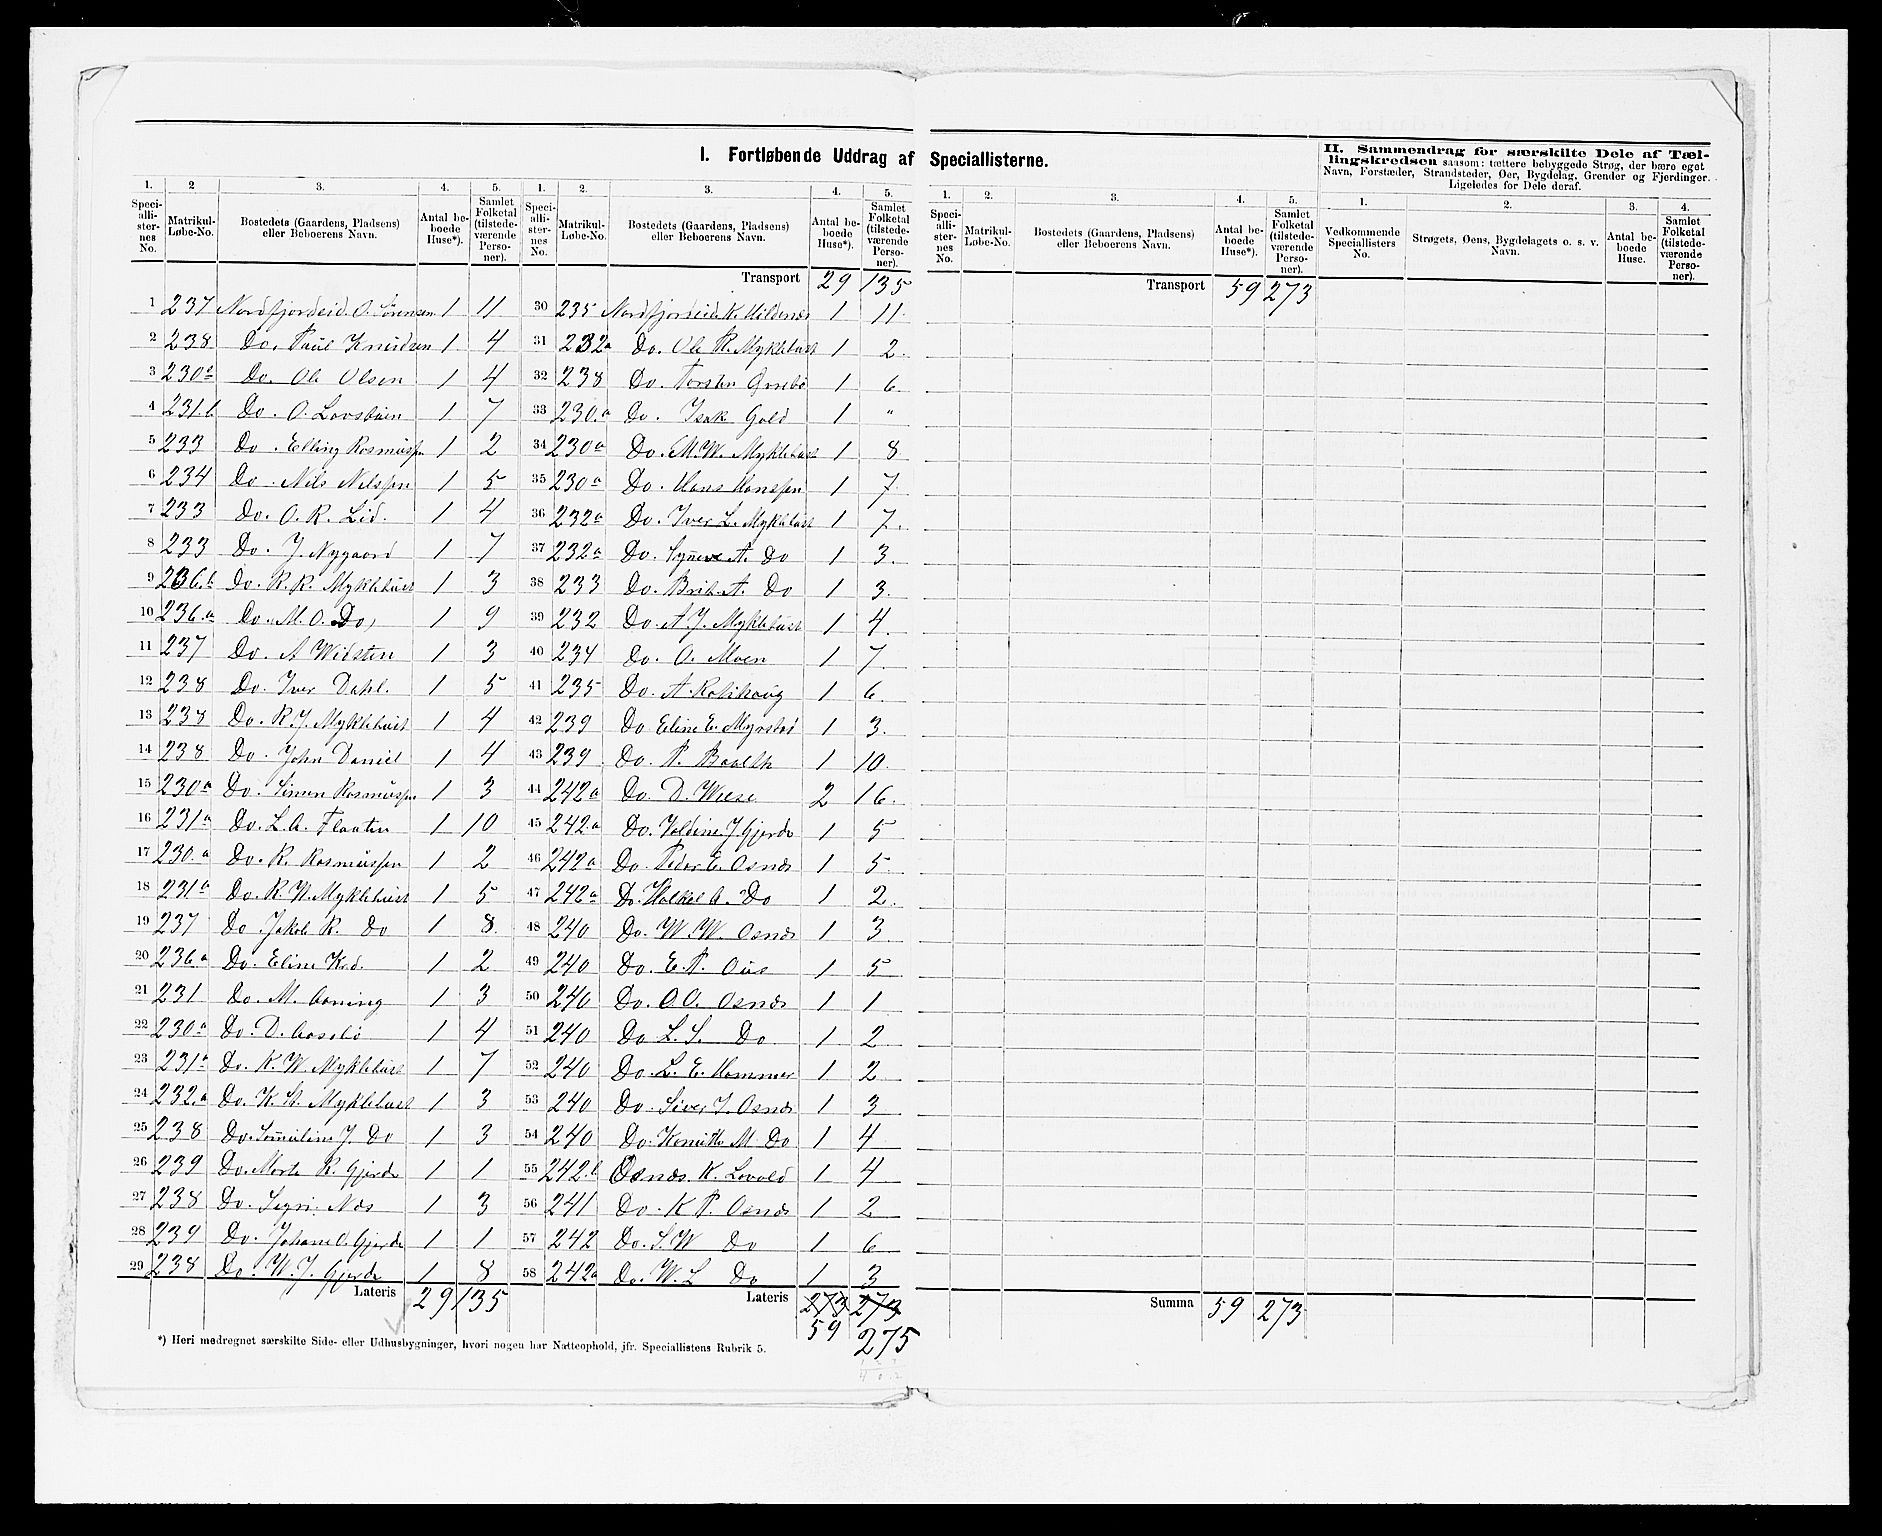 I. Fortløbende Uddrag af Speciallisterne.
II. Sammendrag for særskilte Dele af Tæl-
lingskredsen saasom: tættere bebyggede Strøg, der bære eget
Navn, Forstæder, Strandsteder, Øer, Bygdelag, Grender og Fjerdinger.
Ligeledes for Dele deraf.
1. 2 3. 4. 5.
Speci-alli-ster-nes No. Matrikul-Løbe-No. Bostedets (Gaardens, Pladsens) eller Beboerens Navn. Antal be-boede Huse*). Samlet Folketal (tilstede-værende Perso-ner).
1 237 Nordfjordeid O. Sørensen 1 11
2 238 Do. Paul Knudsen 1 4
3 230a Do. Ole Olsen 1 4
4 231.b Do. O. Lovsbuen 1 7
5 233 Do. Elling Rasmussen 1 2
6 234 Do. Nils Nilssen 1 5
7 233 Do. O. R. Lid. 1 4
8 233 Do. J. Nygaard 1 7
9 236.b Do. R. R. Myklebust 1 3
10 236.a Do. M. O. Do, 1 9
11 237 Do. A Wilsten 1 3
12 238 Do. Iver Dahl. 1 5
13 238 Do. R. J. Myklebust 1 4
14 238 Do. John Daniel 1 4
15 230a Do. Simen Rasmussen 1 3
16 231a Do. L. A. Flaaten 1 10
17 230.a Do. R. Rasmussen 1 2
18 231a Do. R. W. Myklebust 1 5
19 237 Do. Jakob R. Do 1 8
20 236.a Do. Eline Kd. 1 2
21 231 Do. M. Aaning 1 3
22 230.a Do. D. Aasebø 1 4
23 231a Do. K. W. Myklebust 1 7
24 232.a Do. K. St. Myklebust 1 3
25 238 Do. J. Do 1 3
26 239 Do. R. Gjerde 1 1
27 238 Do. Næs 1 3
28 239 Do. Johane O. Gjerde 1 1
29 238 Do. W. J. Gjerde 1 8
Lateris 29 135
1. 2. 3. 4. 5.
Speci-alli-ster-nes No. Matrikul-Løbe-No. Bostedets (Gaardens, Pladsens) eller Beboerens Navn. Antal be-boede Huse*). Samlet Folketal (tilstede-værende Perso-ner).
Transport 29 135
30 235 Nordfjordeid K. Hildenæs 1 11
31 232a Do. Ole R. Myklebust 1 2.
32 238 Do. Torsten 1 6
33 230.a Do. Isak Gold 1 "
34 230a Do. M. W. Myklebust 1 8
35 230a Do. Hans Hanssen 1 7
36 232a Do. Iver L. Myklebust 1 7.
37 232a Do. Syneve A. Do 1 3.
38 233 Do. A. Do 1 3.
39 232 Do. A J. Myklebust 1 4.
40 234 Do. O. Moen 1 7.
41 235 Do. A. 1 6.
42 239 Do Eline E. Myrstad 1 3.
43 239 Do. P. 1 10.
44 242a Do. D. Wiese 2 16.
45 242.a Do. J. Gjerde 1 5
46 242a Do. Peder E. Osnæs 1 5.
47 242a Do. A. Do 1 2.
48 240 Do. W. W. Osnæs 1 3
49 240 Do. E. P. 1 5
50 240 Do. O. O. Osnæs 1 1
51 240 Do L. S. Do 1 2
52 240 Do. L. E. Hammer 1 2
53 240 Do. Siver J. Osnæs 1 3
54 240 Do. M. Do 1 4
55 242.b Osnæs K. Lovold 1 4
56 241 Do. K P. Osnæs 1 2
57 242 Do. S. W Do 1 6
58 242a Do. W. L Do 1 3
Lateris 273 273
59 275
1. 2. 3. 4. 5.
Speci-alli-ster-nes No. Matrikul-Løbe-No. Bostedets (Gaardens, Pladsens) eller Beboerens Navn. Antal be-boede Huse*). Samlet Folketal (tilstede-værende Perso-ner).
Transport 59 273
Summa 59 273
1. 2. 3. 4.
Vedkommende Speciallisters No. Strøgets, Øens, Bygdelagets o. s. v. Navn. Antal be-boede Huse. Samlet Folketal (tilstede-værende Perso-ner).
*) Heri medregnet særskilte Side- eller Udhusbygninger, hvori nogen har Natteophold, jfr. Speciallistens Rubrik 5.